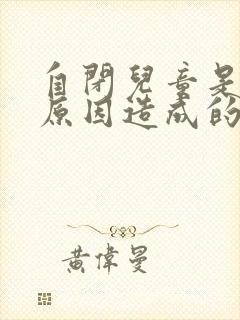 自閉兒童是
原因造成的
黃偉曼